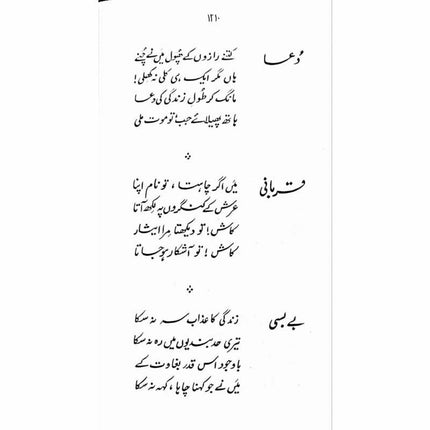 ۱۲۱۰
دُعا
کتنے رازوں کے پھول میں نے چُنے
ہاں مگر ایک ہی کلی نہ کھلی!
مانگ کر طُولِ زندگی کی دعا
ہاتھ پھیلائے جب تو موت ملی
قربانی
میں اگر چاہتا، تو نام اپنا
عرش کے کنگروں پہ لکھ آتا
کاش! تو دیکھتا مرا ایثار
کاش! تو آشکار ہو جاتا
بے بسی
زندگی کا عذاب سہ نہ سکا
تیری حد بندیوں میں رہ نہ سکا
باوجود اس قدر بغاوت کے
میں نے جو کہنا چاہا، کہہ نہ سکا